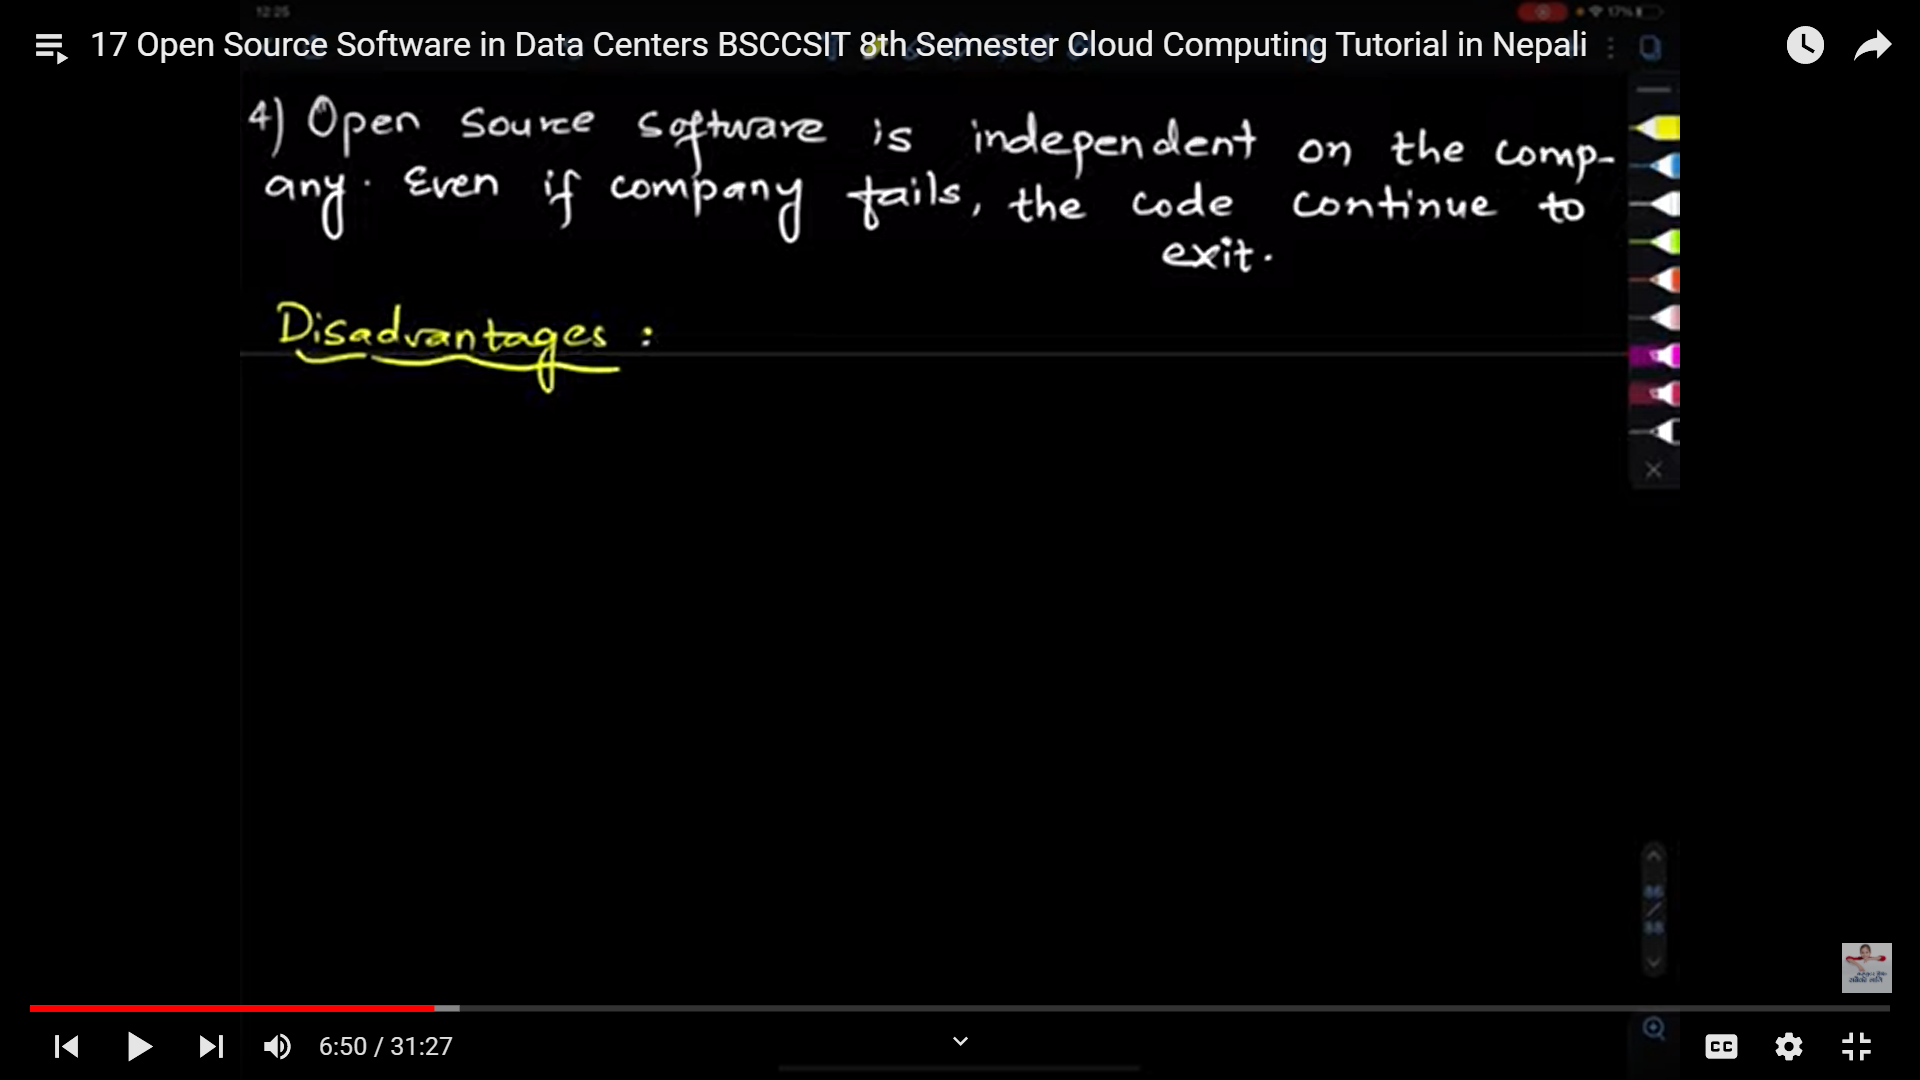 12:25
17%
17 Open Source Software in Data Centers BSCCSIT 8th Semester Cloud Computing Tutorial in Nepali
4) Open source software is independent on the comp-
any. Even if company fails, the code continue to
exit.
Disadvantages :
86
/
88
6:50 / 31:27
CC